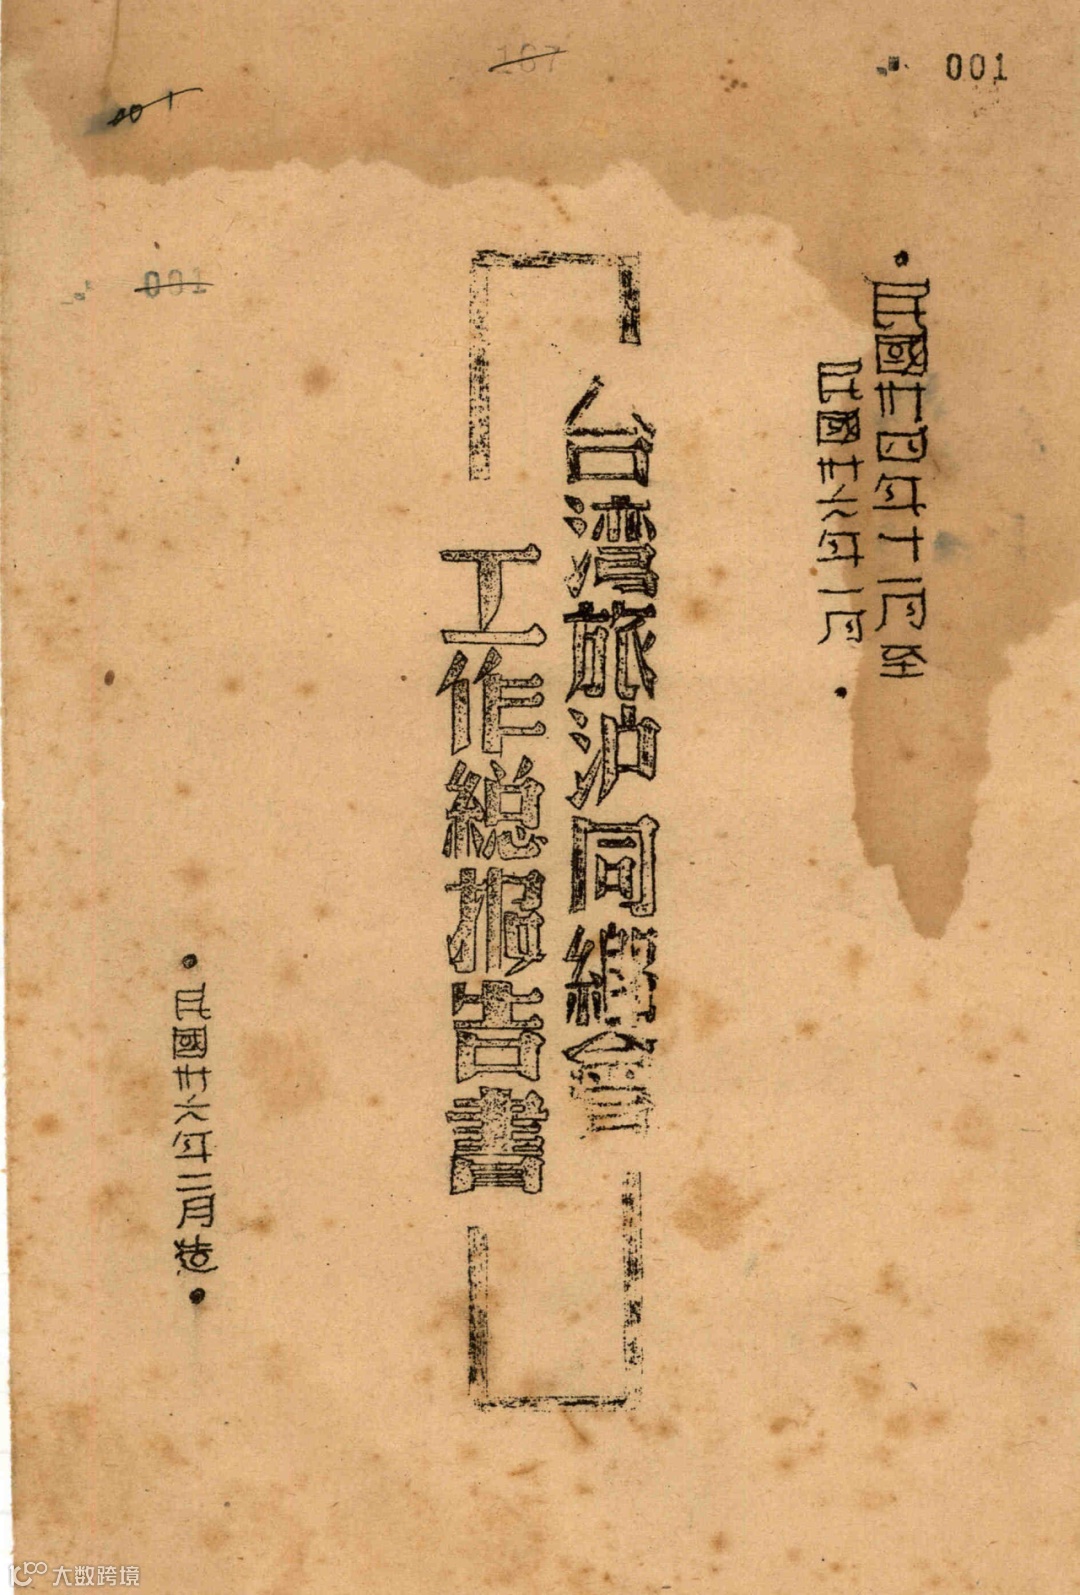 001
167
001
001
•民國卅四年十二月至
民國卅六年二月•
台湾旅沪同鄉會
工作総报告書
•民國卅六年三月造•
大数跨境